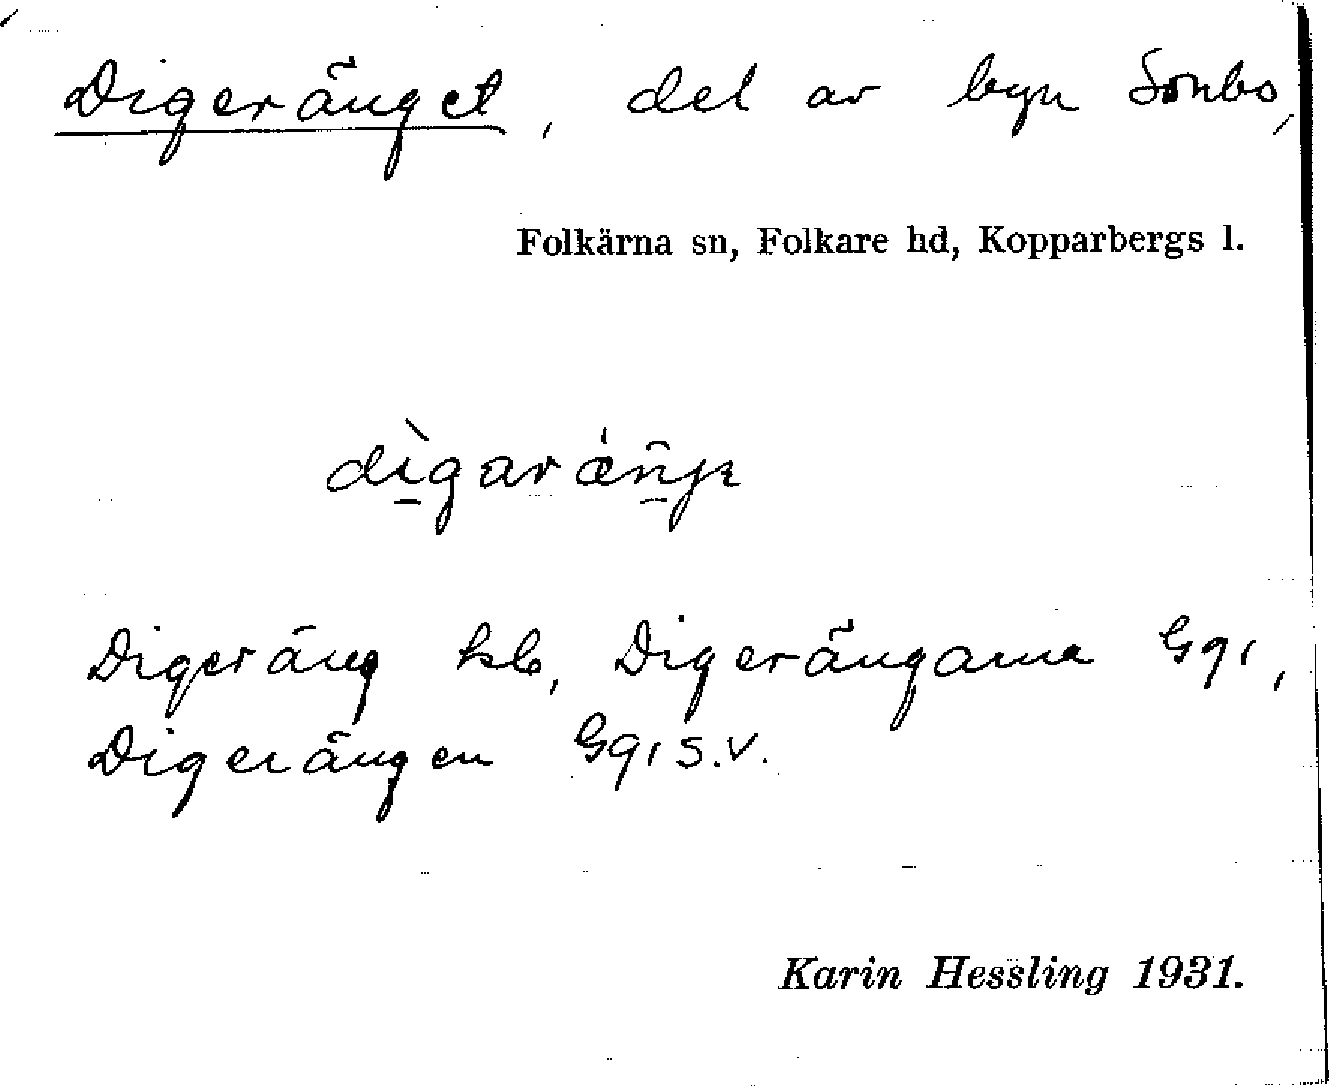 Digeränget, del av byn Sonbo,
Folkärna sn, Folkare hd, Kopparbergs l.
Digeräng kb, Digerängarna Gg1,
Digerängen Gg1 S.V.
Karin Hessling 1931.